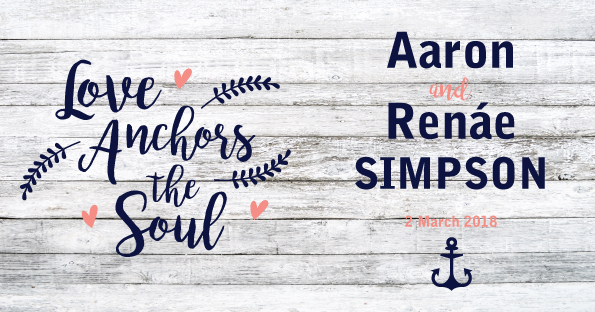 Love
Anchors
the
Soul
Aaron
and
Renáe
SIMPSON
2 March 2018